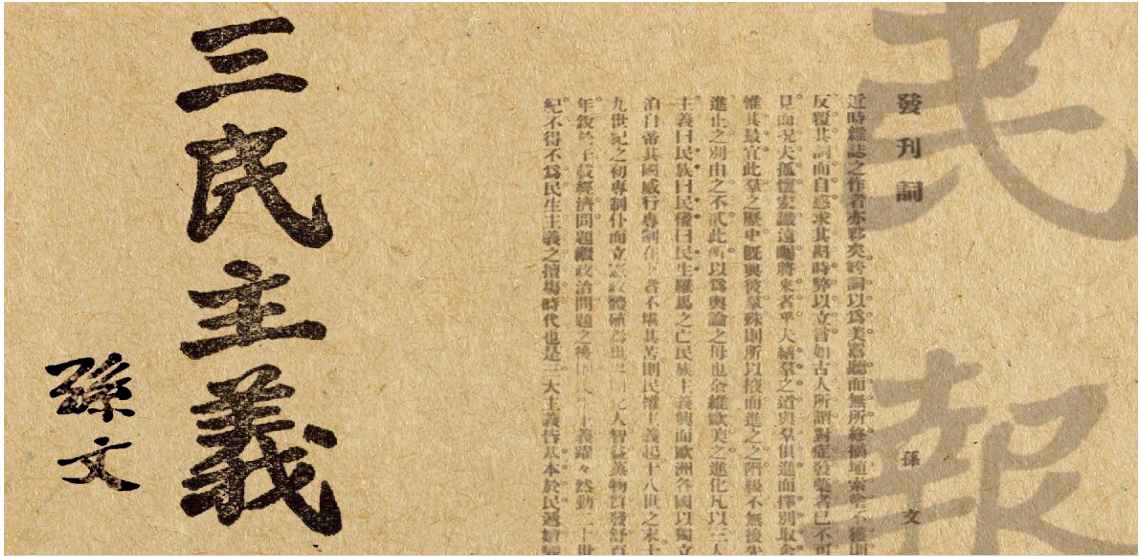 民報
發刊詞
孫文
近時雜誌之作者亦夥矣姱詞以爲美囂聽而無所終摘埴索塗不獲則
反覆其詞而自惑求其斟時弊以立言如古人所謂對症發藥者已不可
見而況夫孤懷宏識遠矚將來者乎夫繕羣之道與羣俱進而擇別取舍
惟其最宜此羣之歷史既與彼羣殊則所以掖而進之之階級不無後先
進止之別由之不貳此所以爲輿論之母也余維歐美之進化凡以三大
主義曰民族曰民權曰民生羅馬之亡民族主義興而歐洲各國以獨立
洎自帝其國威行專制在下者不堪其苦則民權主義起十八世之末十
九世紀之初專制仆而立憲政體殖焉世界開化人智益蒸物質發舒百
年銳於千載經濟問題繼政治問題之後則民生主義躍々然動二十世
紀不得不爲民生主義之擅場時代也是三大主義皆基本於民遞嬗變
三民主義
孫文